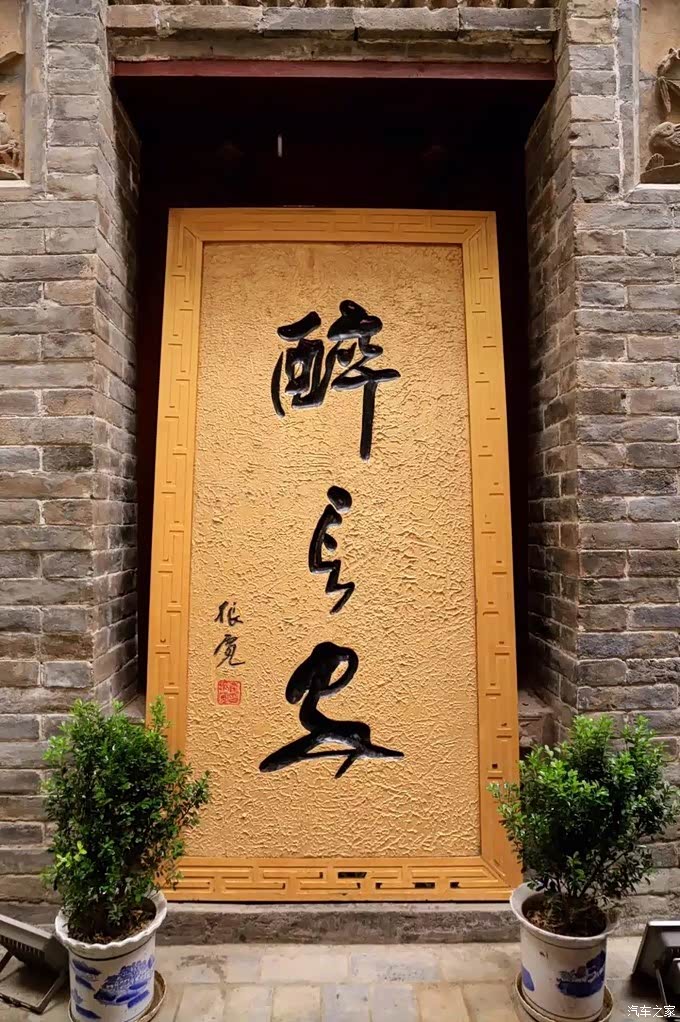 醉长安
张宽
汽车之家